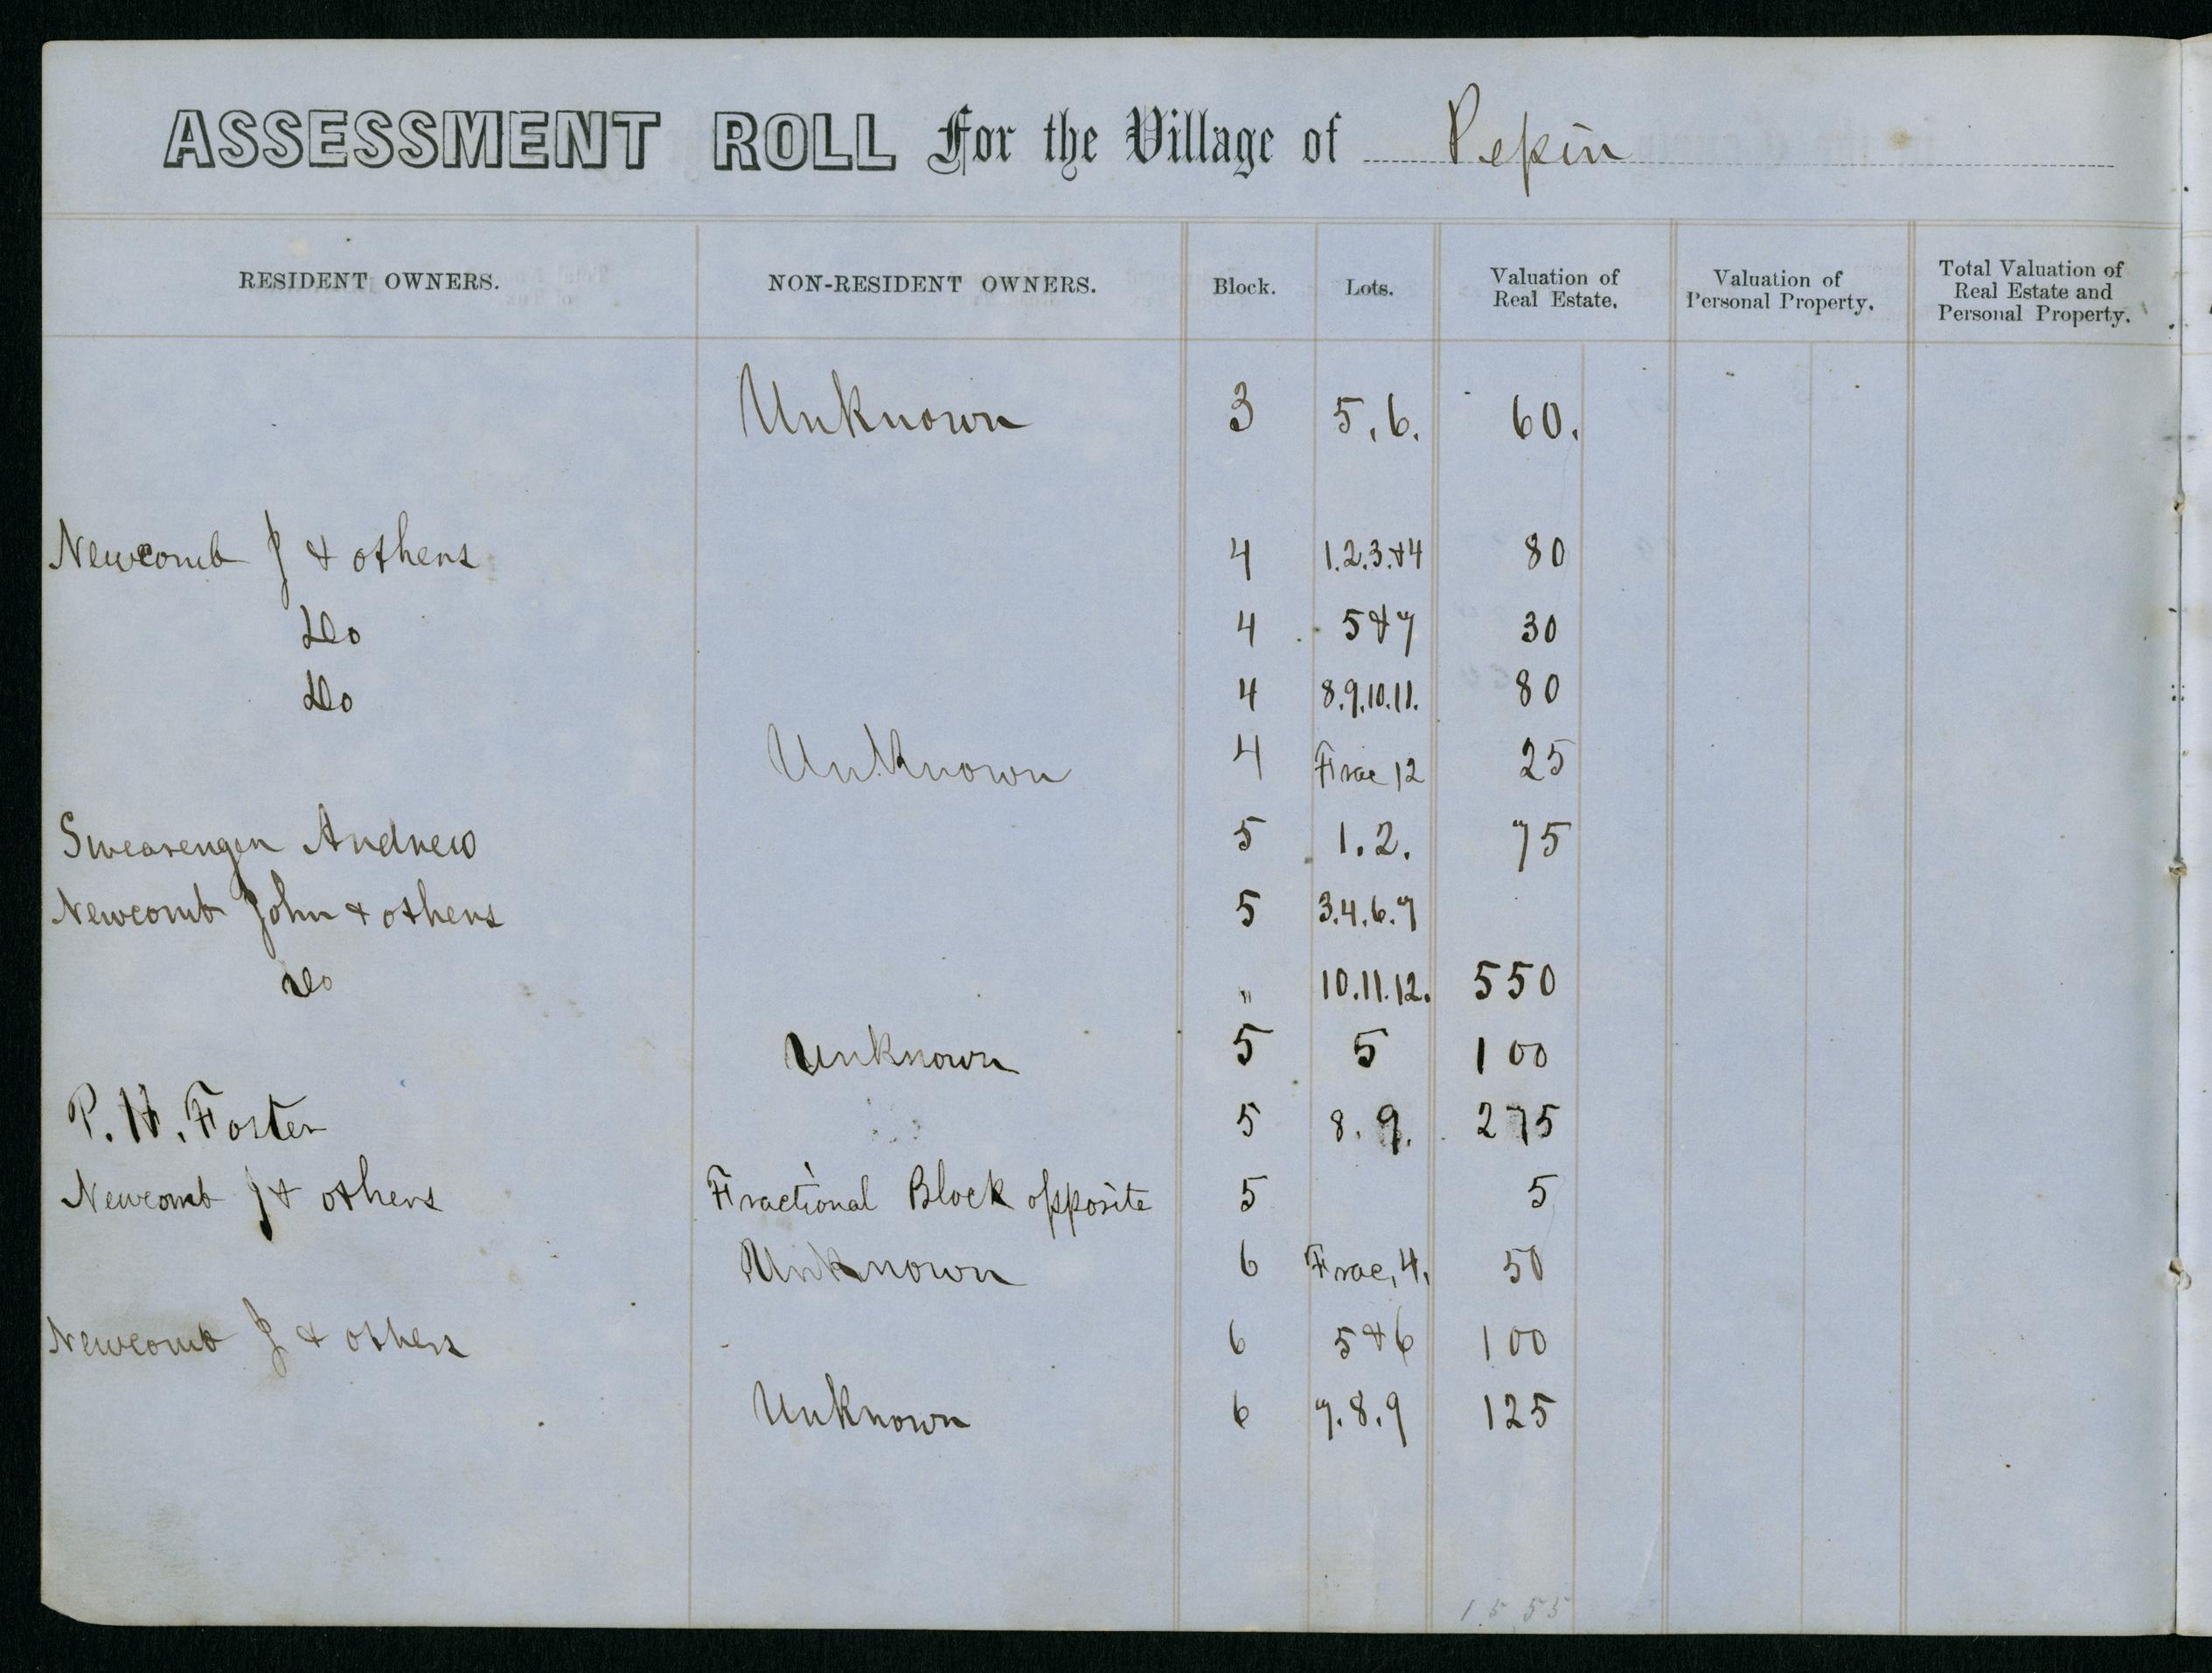 ASSESSMENT ROLL For the Village of Pepin
RESIDENT OWNERS. NON-RESIDENT OWNERS. Block. Lots. Valuation of Real Estate. Valuation of Personal Property. Total Valuation of Real Estate and Personal Property.
Unknown 3 5,6. 60.
Newcomb J & others 4 1.2.3.&4 80
Do 4 5&7 30
Do 4 8.9.10.11. 80
Unknown 4 Frac 12 25
Swearengen Andrew 5 1.2. 75
Newcomb John & others 5 3.4.6.7
Do " 10.11.12. 550
Unknown 5 5 100
P. H. Foster 5 8.9. 275
Newcomb J & others Fractional Block opposite 5 5
Unknown 6 Frac, 4, 50
Newcomb J & others 6 5&6 100
Unknown 6 7.8.9 125
1555